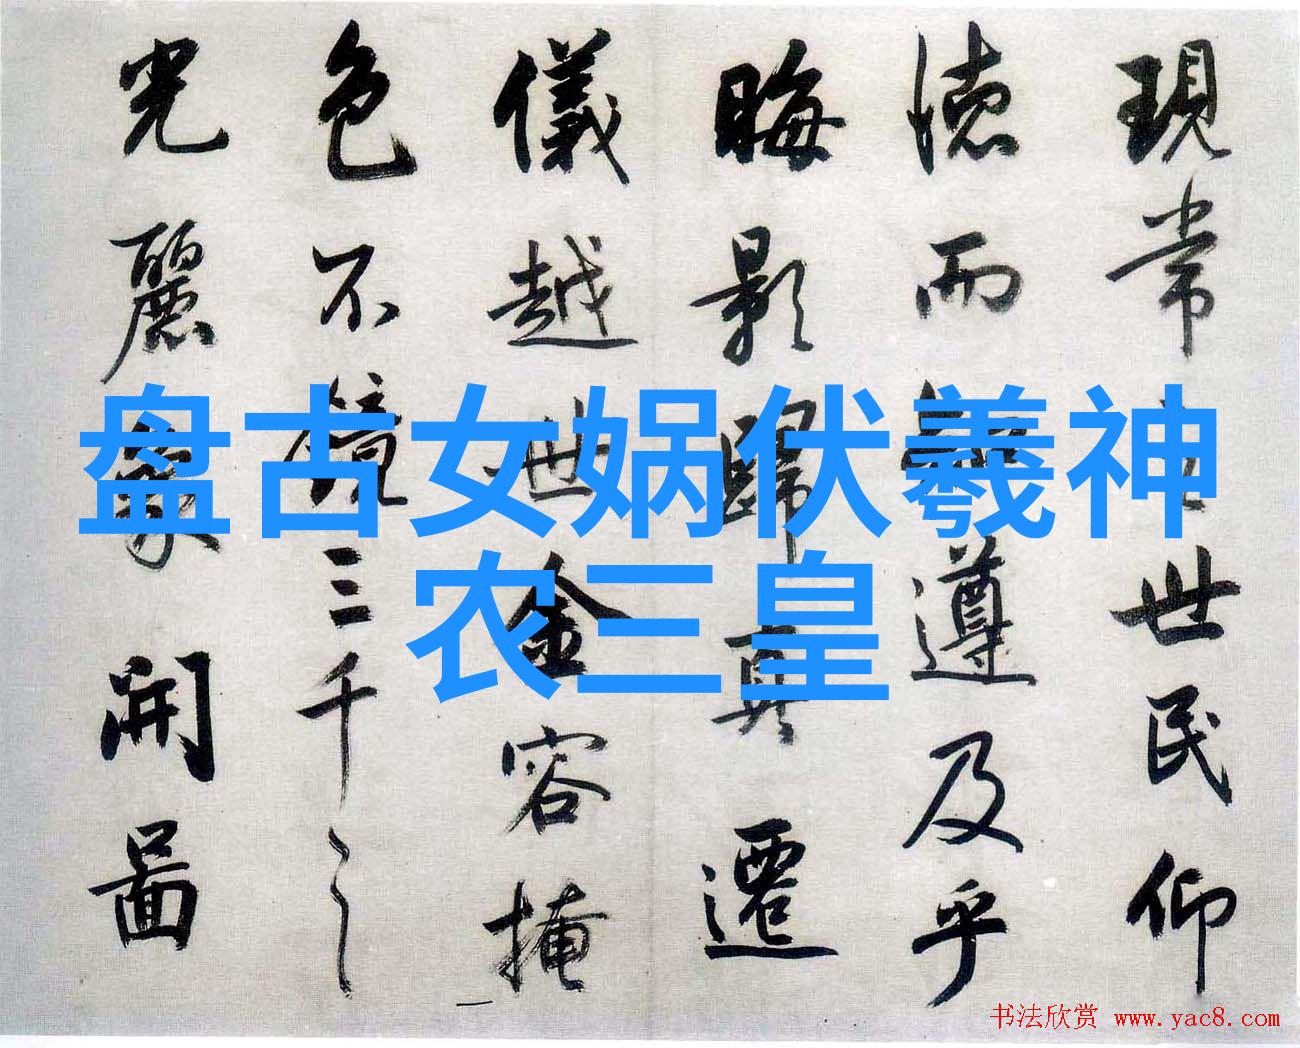 現常□世民仰
德而□遵及乎
晦影歸真遷
儀越世金容掩
色不鏡三千之
光麗象開圖
盘古女娲伏羲神
农三皇
书法欣赏 www.yac8.com